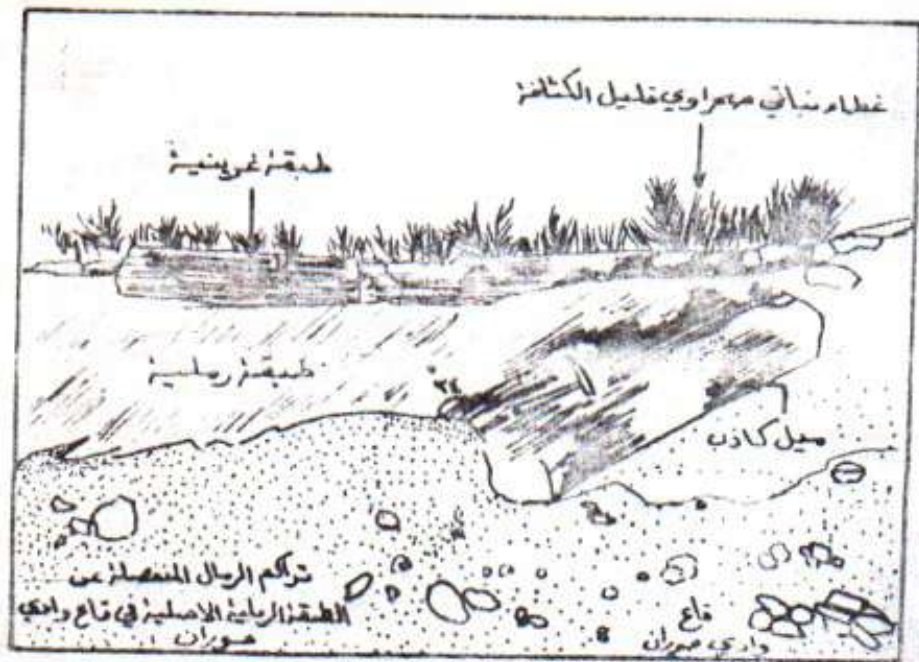 غطاء نباتي صحراوي قليل الكثافة
طبقة غرينية
طبقة رملية
٣٤°
ميل كاذب
تراكم الرمال المنفصلة عن
الطبقة الرملية الاصلية في قاع وادي
حوران
قاع
وادي حوران